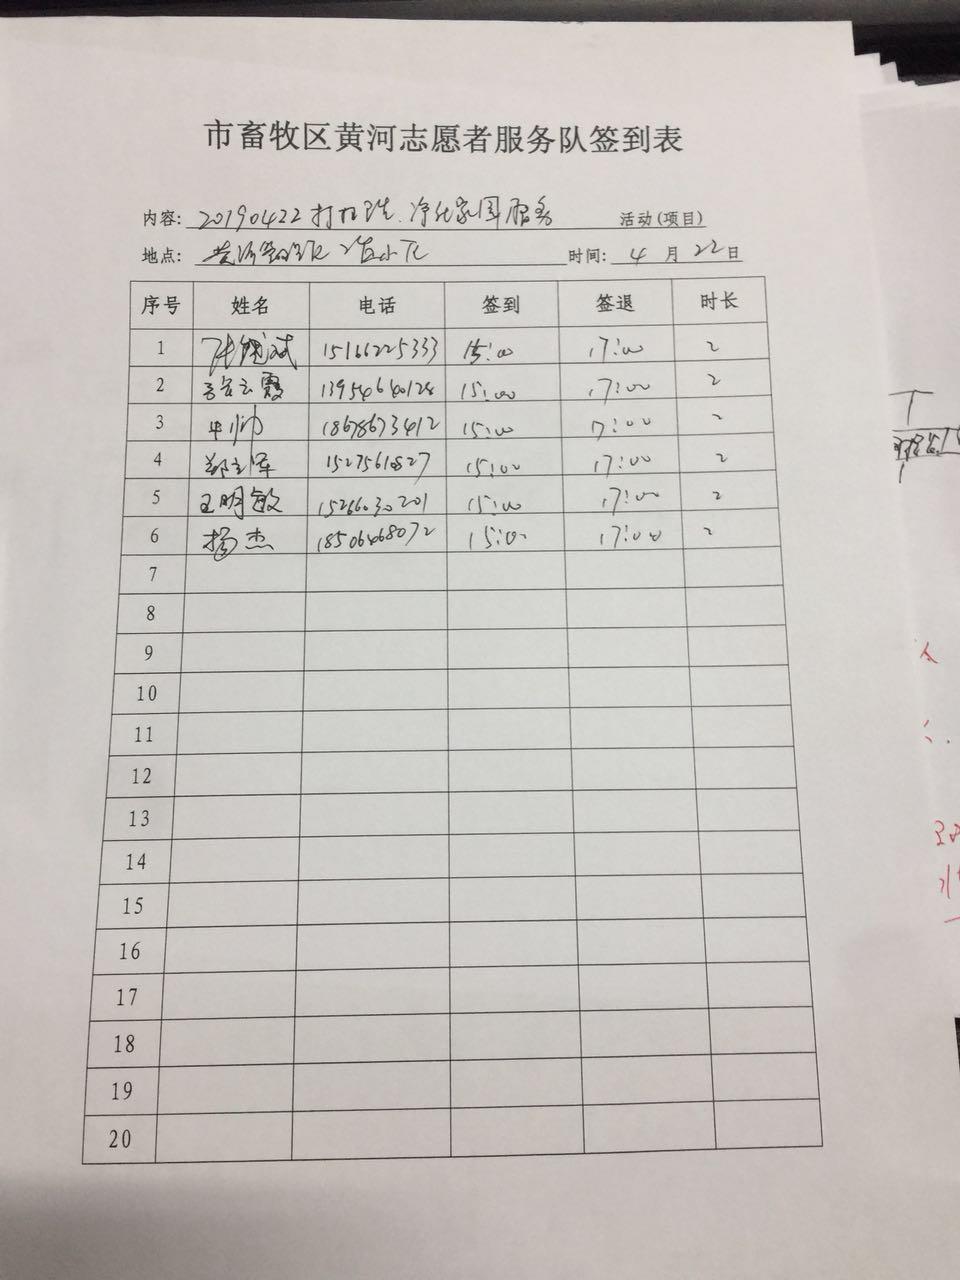 市畜牧区黄河志愿者服务队签到表
内容: 20190422 净化家园服务 活动(项目)
地点: 时间: 4 月 22 日
序号 姓名 电话 签到 签退 时长
1 15166225333 15:00 17:00 2
2 15:00 17:00 2
3 申帅 18678673412 15:00 17:00 2
4 15:00 17:00 2
5 王明敏 15266030201 15:00 17:00 2
6 杨杰 18506468072 15:00 17:00 2
7
8
9
10
11
12
13
14
15
16
17
18
19
20